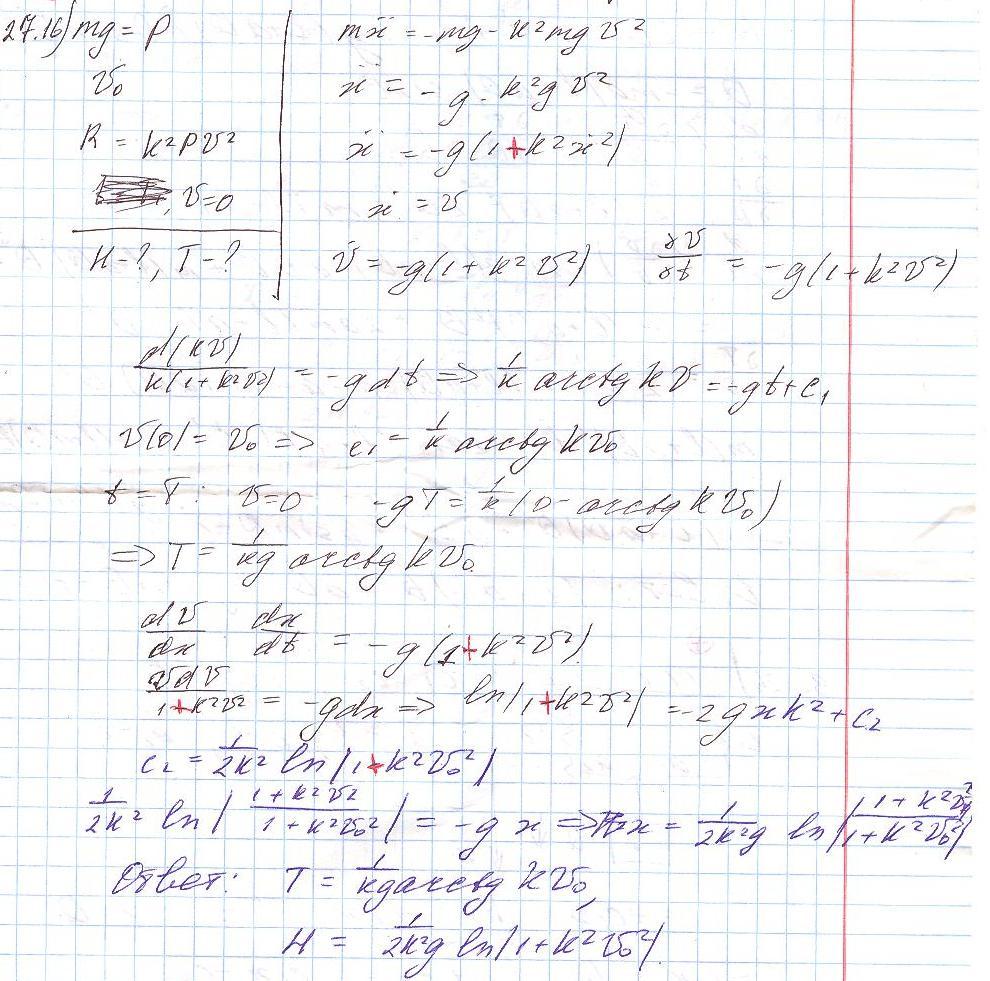 27.16) mg = P
v₀
R = k²Pv²
, v=0
H-?, T-?
mẍ = -mg - k²mgv²
ẍ = -g - k²gv²
ẍ = -g(1+k²ẋ²)
ẋ = v
v̇ = -g(1+k²v²) dv/dt = -g(1+k²v²)
d(kv)/k(1+k²v²) = -gdt => 1/k arctg kv = -gt+c₁
v(0) = v₀ => c₁ = 1/k arctg kv₀
t = T: v=0 -gT = 1/k (0 - arctg kv₀)
=> T = 1/kg arctg kv₀
dv/dx dx/dt = -g(1+k²v²)
vdv/1+k²v² = -gdx => ln|1+k²v²| = -2gxk²+c₂
c₂ = 1/2k² ln|1+k²v₀²|
1/2k² ln|1+k²v²/1+k²v₀²| = -gx => x = 1/2k²g ln|1+k²v₀²/1+k²v₀²|
Ответ: T = 1/kg arctg kv₀,
H = 1/2k²g ln|1+k²v₀²|.